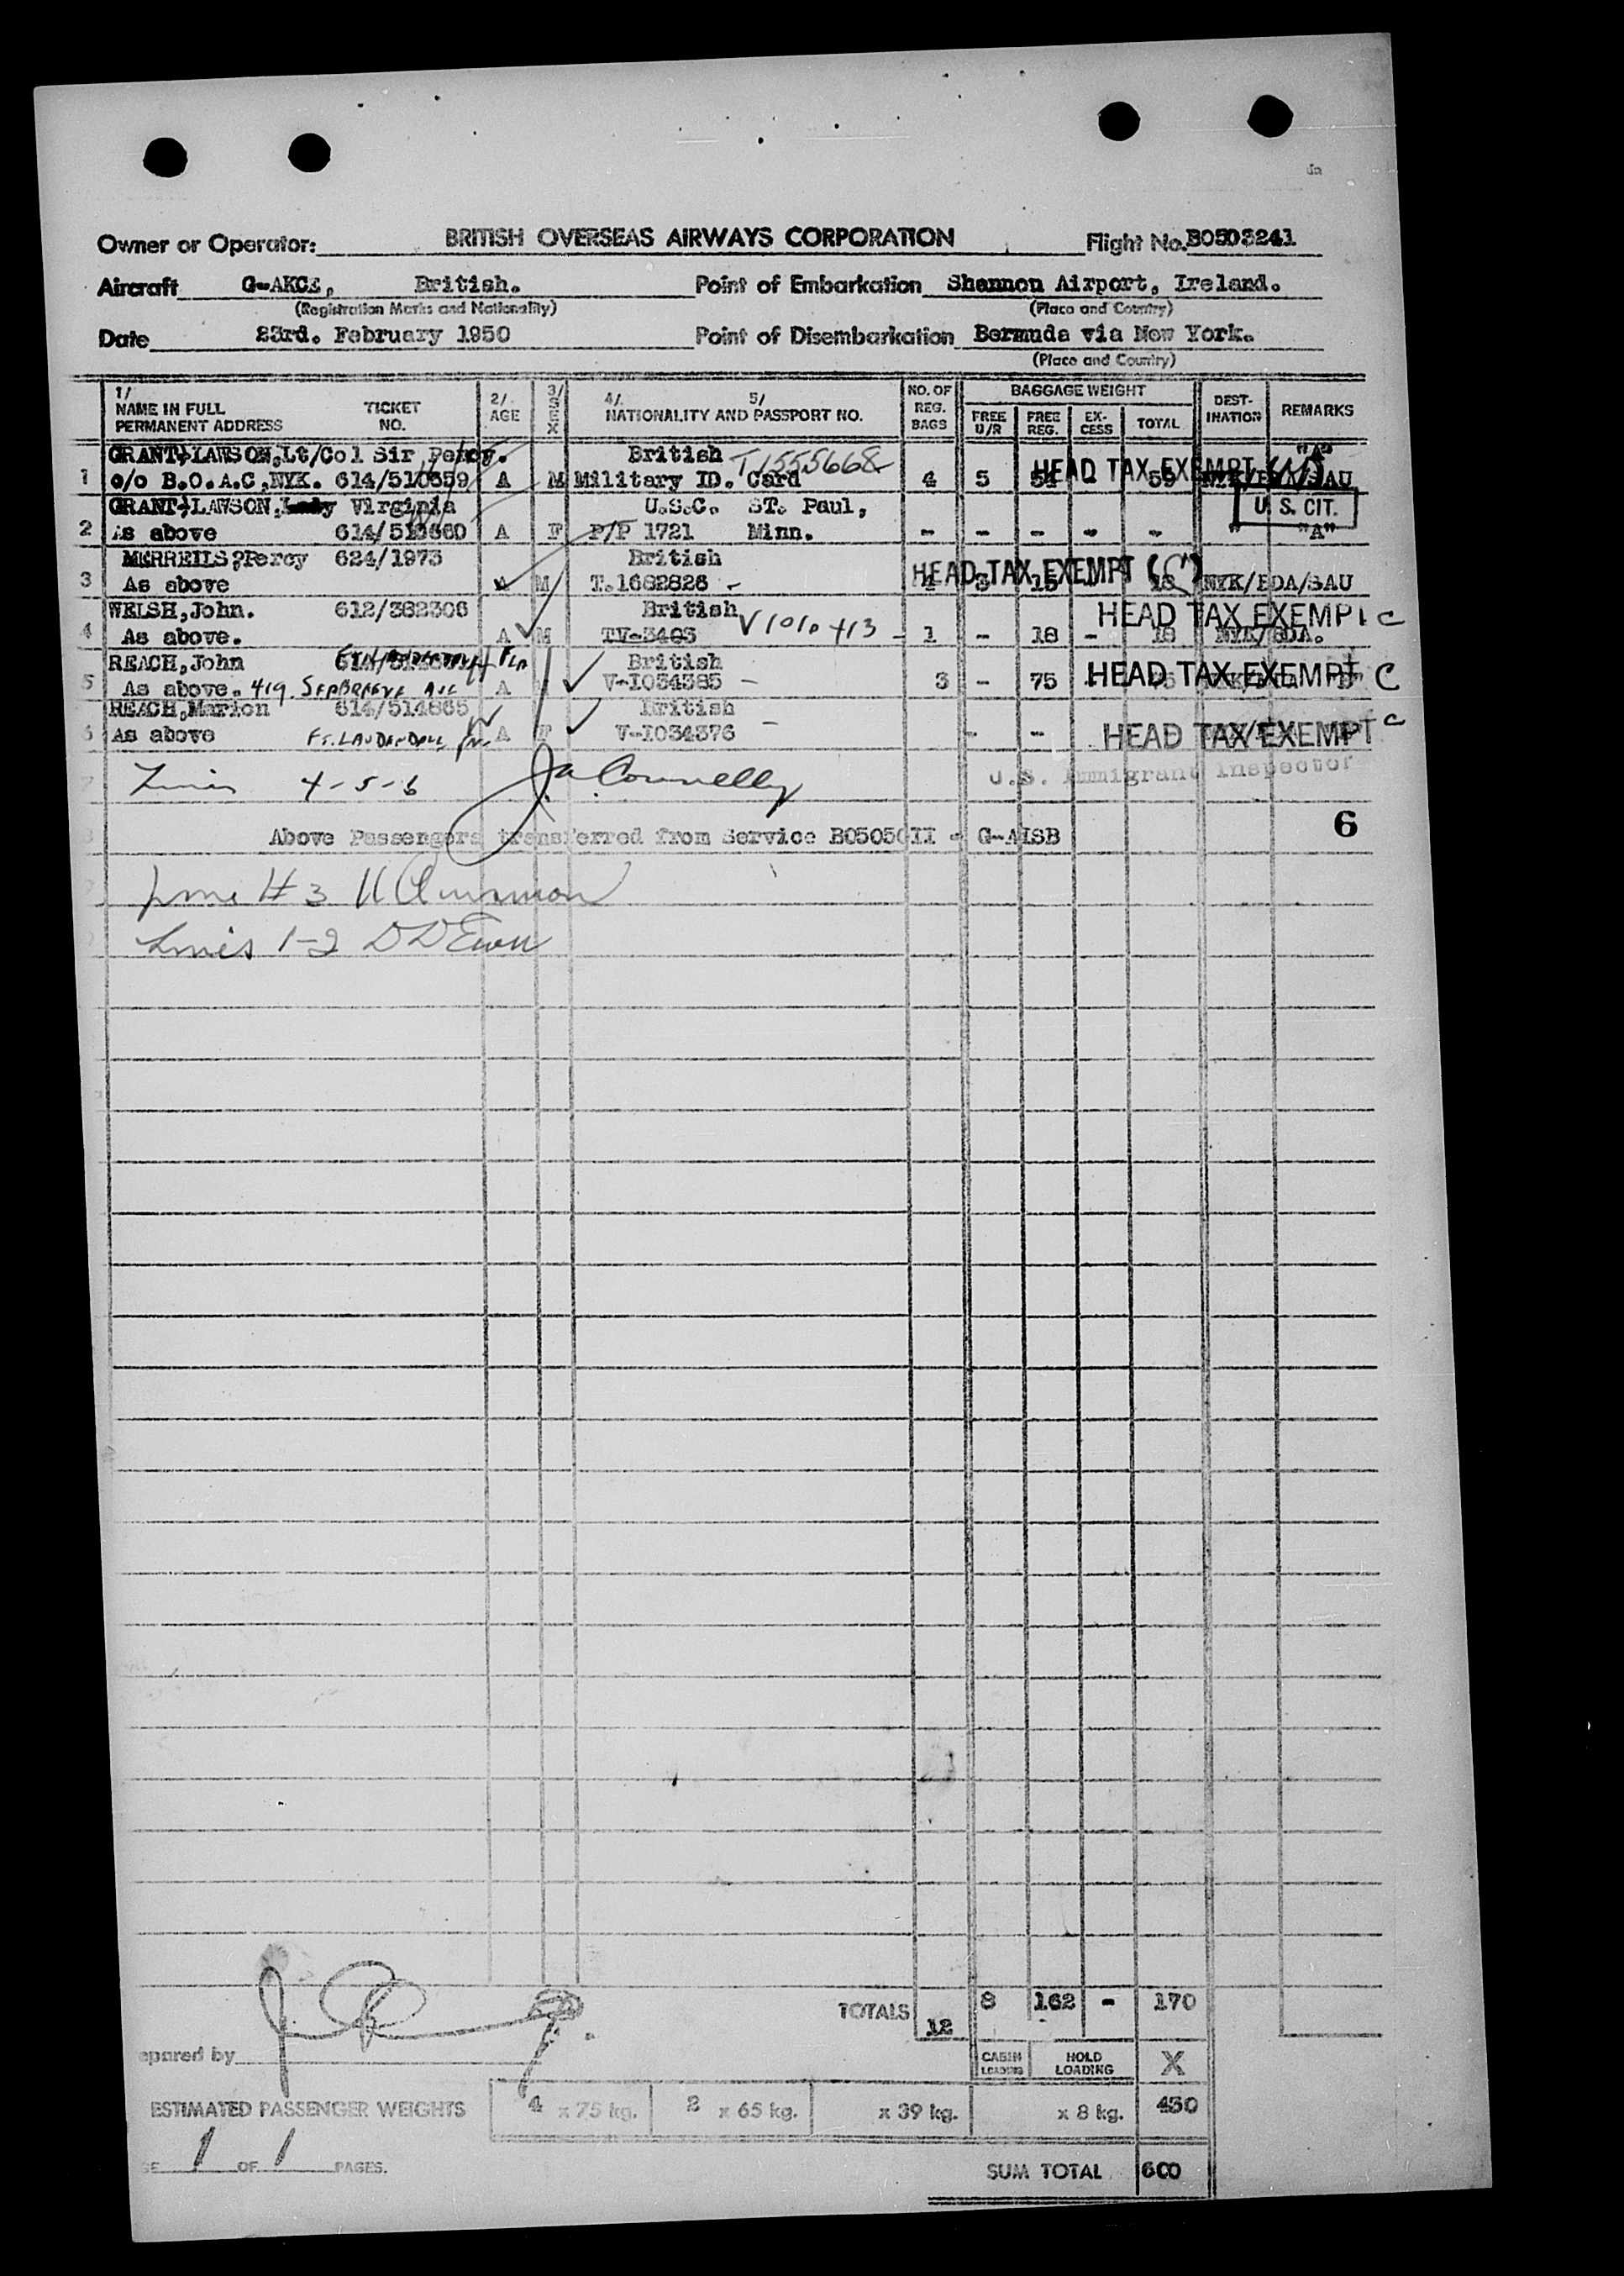 Owner or Operator: BRITISH OVERSEAS AIRWAYS CORPORATION Flight No. B0503241
Aircraft G-AKCE, British. Point of Embarkation Shannon Airport, Ireland.
(Registration Marks and Nationality) (Place and Country)
Date 23rd. February 1950 Point of Disembarkation Bermuda via New York.
(Place and Country)
1/ NAME IN FULL PERMANENT ADDRESS TICKET NO. 2/ AGE 3/ SEX 4/ 5/ NATIONALITY AND PASSPORT NO. NO. OF REG. BAGS BAGGAGE WEIGHT FREE U/R FREE REG. EX-CESS TOTAL DEST-INATION REMARKS
GRANT-LAWSON, Lt/Col Sir Percy. British T1555668 "A"
1 c/o B.O.A.C, NYK. 614/510659 A M Military ID. Card 4 5 54 - 59 HEAD TAX EXEMPT
GRANT-LAWSON, Lady Virginia U.S.C. ST. Paul, U. S. CIT.
2 As above A F P/P 1721 Minn. - - - - - " "A"
MERREILS, Percy 624/1973 British HEAD TAX EXEMPT (C)
3 As above A M T.1682826 - 4 3 15 - 18 NYK/BDA/SAU
WELSH, John. 612/382306 British V1010413 HEAD TAX EXEMPT C
4 As above. A M TV-3403 - 1 - 18 - 18 NYK/BDA.
REACH, John FLA British
5 As above. 419 SEABREEZE AVE A V-I034385 - 3 - 75 HEAD TAX EXEMPT C
REACH, Marion 614/514865 British
6 As above FT. LAUDERDALE A F V-I034376 - - - HEAD TAX EXEMPT C
7 Lines 4-5-6 J A Connelly U.S. Immigrant Inspector
8 Above Passengers transferred from Service B05050II - G-AISB 6
Line #3
Lines 1-2 D D Ewen
TOTALS 12 8 162 - 170
epared by CABIN LOADING HOLD LOADING X
ESTIMATED PASSENGER WEIGHTS 4 x 75 kg. 2 x 65 kg. x 39 kg. x 8 kg. 430
GE 1 OF 1 PAGES. SUM TOTAL 600